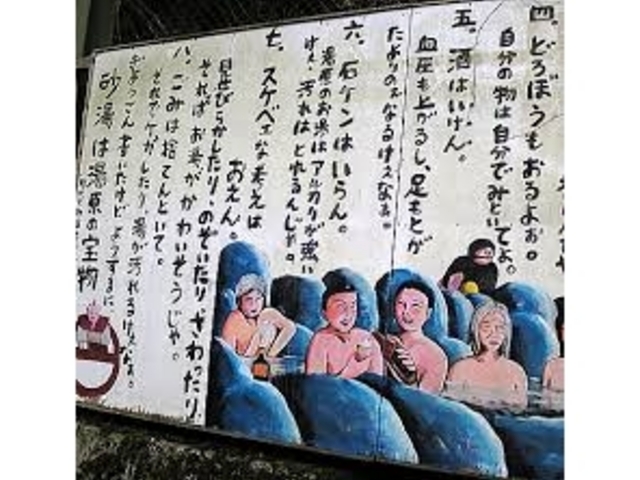 四、どろぼうもおるよお。
自分の物は自分でみといてよ。
五、酒はいけん。
血圧も上がるし、足もとが
たおりのえなるけえなあ。
六、石ケンはいらん。
湯原のお湯はアルカリが強い
けえ、汚れはとれるんじゃ。
七、スケベェな考えは
おえん。
見せびらかしたり、のぞいたり、さわったり、
すればお湯がかわいそうじゃ。
八、ごみは捨てんといて。
されたケがしたり、湯が汚れるけえなあ。
書いたけどようするに
砂湯は湯原の宝物